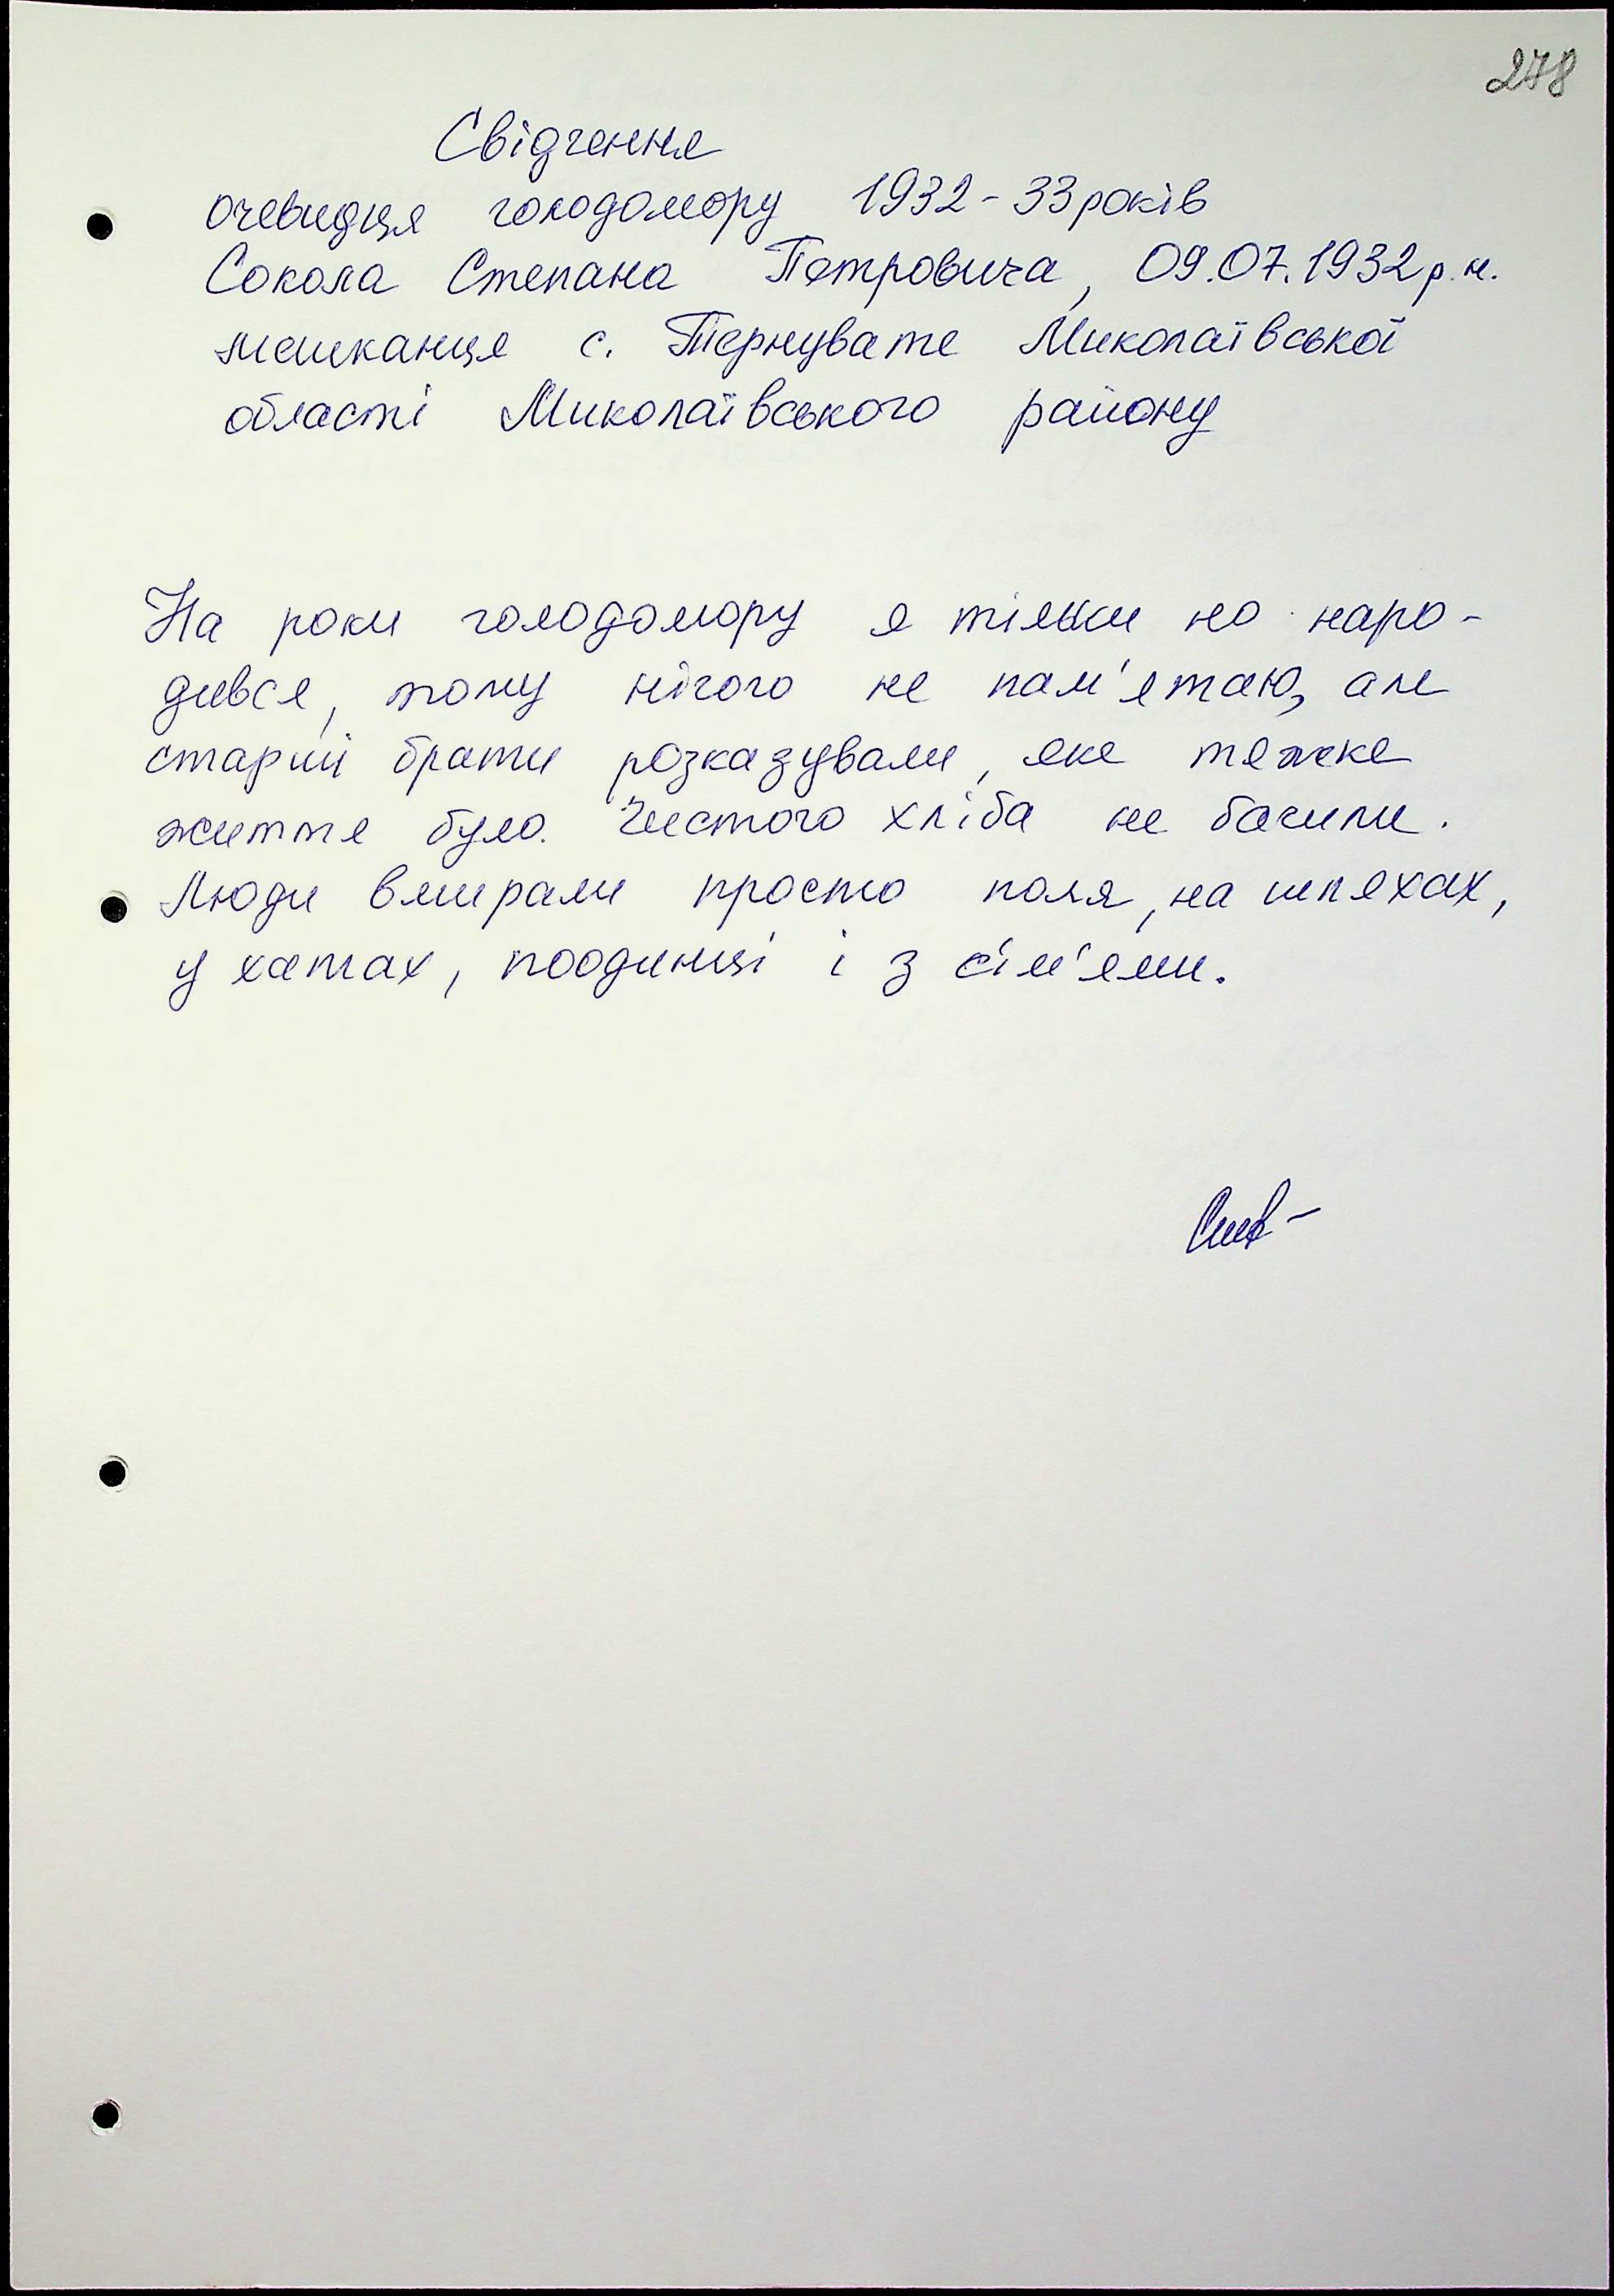 278
Свідчення
очевидця голодомору 1932-33 років
Сокола Степана Петровича, 09.07.1932 р.н.
мешканця с. Тернувате Миколаївської
області Миколаївського району
На роки голодомору я тільки но наро-
дився, тому нічого не пам'ятаю, але
старші брати розказували, яке тяжке
життя було. Чистого хліба не бачили.
Люди вмирали просто поля, на шляхах,
у хатах, поодинці і з сім'ями.